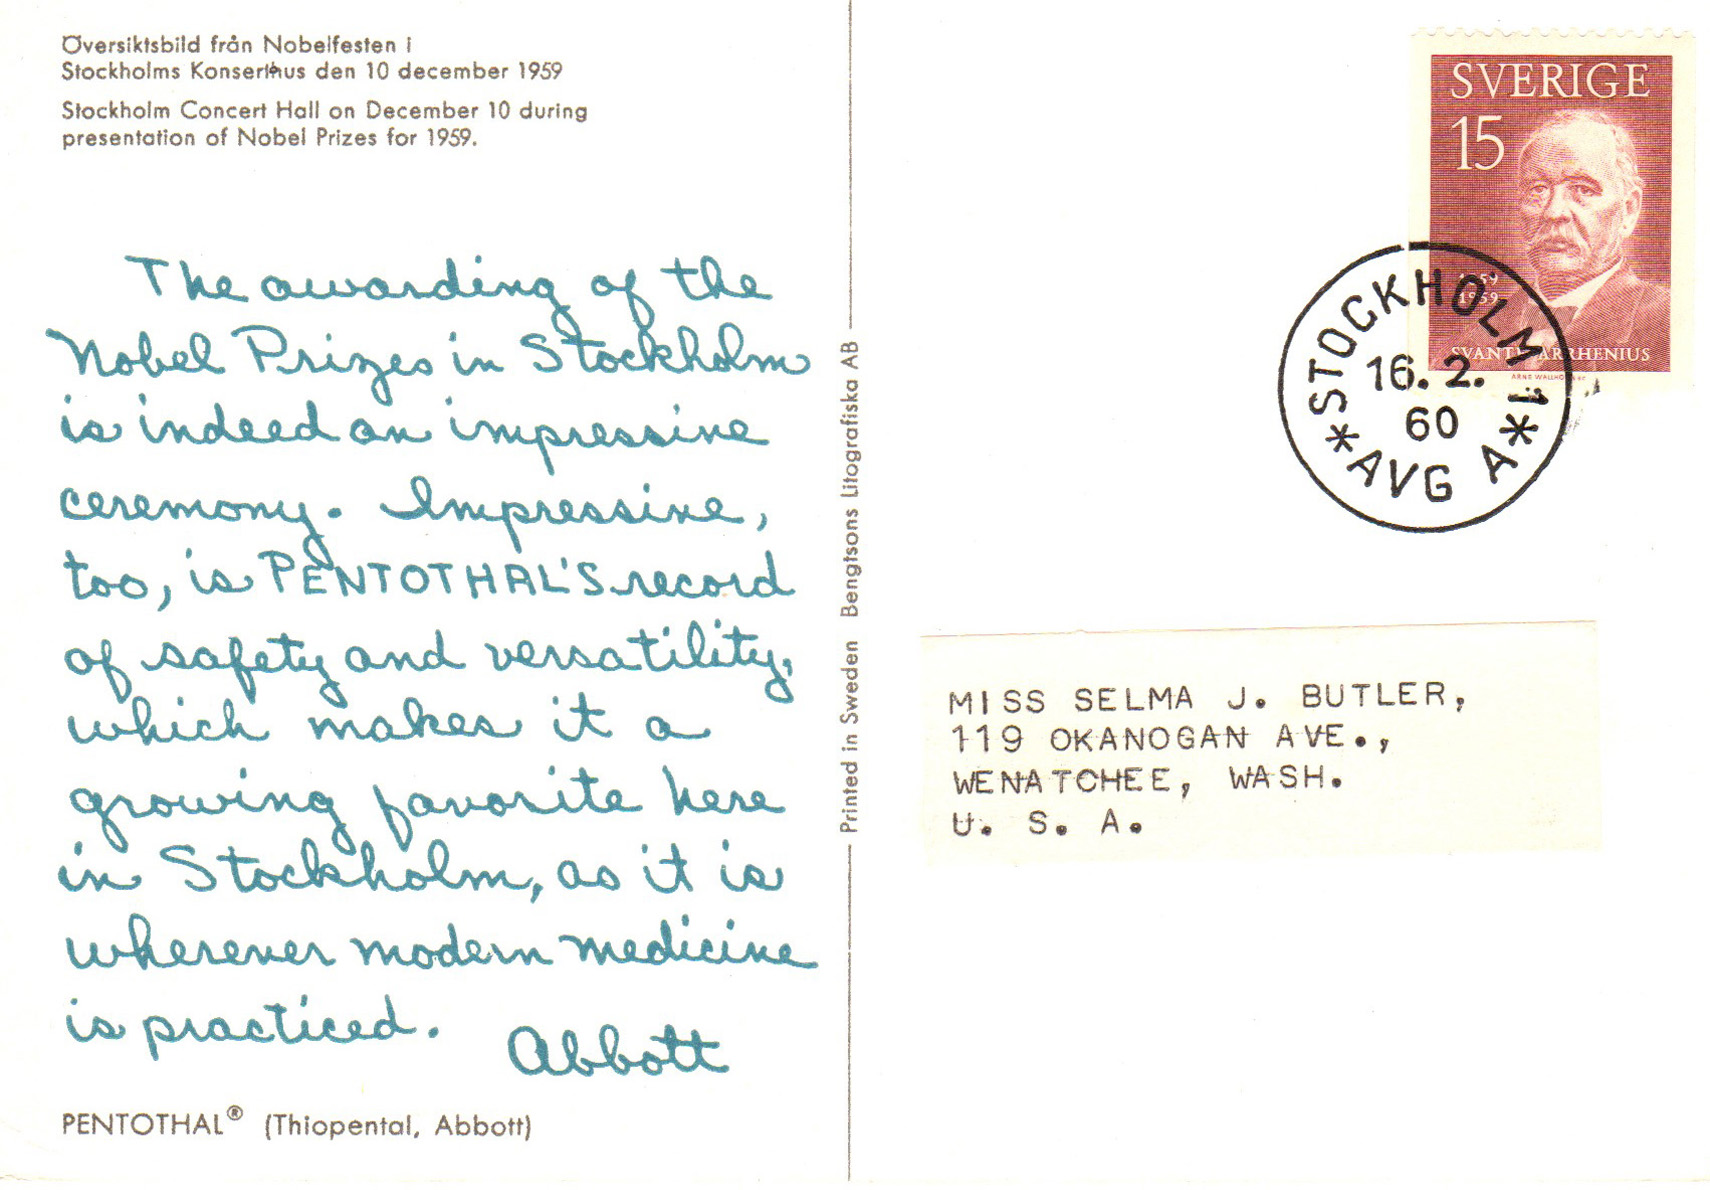 Översiktsbild från Nobelfesten i
Stockholms Konserthus den 10 december 1959
Stockholm Concert Hall on December 10 during
presentation of Nobel Prizes for 1959.
The awarding of the
Nobel Prizes in Stockholm
is indeed an impressive
ceremony. Impressive,
too, is PENTOTHAL'S record
of safety and versatility,
which makes it a
growing favorite here
in Stockholm, as it is
wherever modern medicine
is practiced.
Abbott
PENTOTHAL® (Thiopental, Abbott)
Printed in Sweden Bengtsons Litografiska AB
SVERIGE
15
1859
1959
SVANTE ARRHENIUS
STOCKHOLM 1
16. 2.
60
* AVG A *
MISS SELMA J. BUTLER,
119 OKANOGAN AVE.,
WENATCHEE, WASH.
U. S. A.